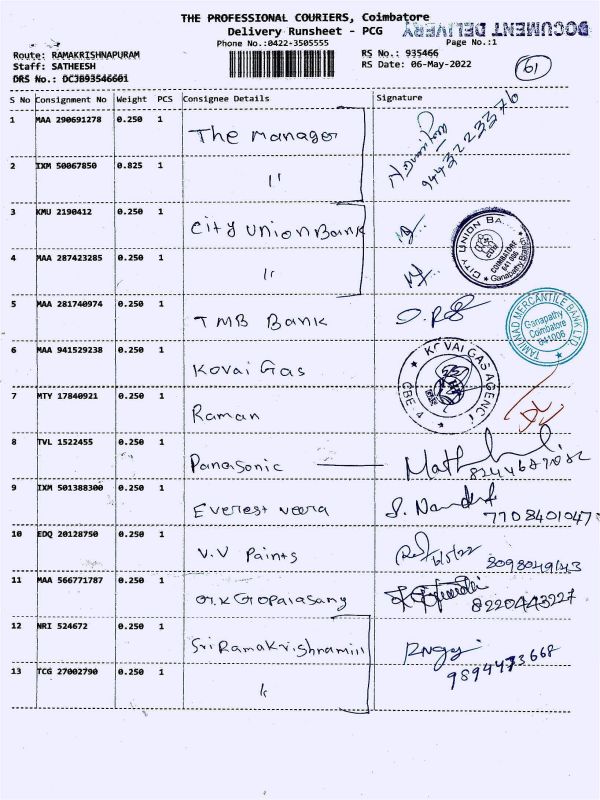 THE PROFESSIONAL COURIERS, Coimbatore
Delivery Runsheet - PCG
DOCUMENT DELIVERY
Phone No.:0422-3505555
Page No.:1
Route: RAMAKRISHNAPURAM
RS No.: 935466
Staff: SATHEESH
RS Date: 06-May-2022
61
DRS No.: DCJ893546601
S No Consignment No Weight PCS Consignee Details Signature
1 MAA 290691278 0.250 1 The Manager
9443223376
2 IXM 50067850 0.825 1 "
3 KMU 2190412 0.250 1 City Union Bank
CITY UNION BA..
COIMBATORE
641 006
Ganapathy Branch
4 MAA 287423285 0.250 1 "
5 MAA 281740974 0.250 1 TMB Bank
TAMILNAD MERCANTILE BANK LTD
Ganapathy
Coimbatore
641006
6 MAA 941529238 0.250 1 Kovai Gas
KOVAI GAS AGENCY
CBE-4
7 MTY 17840921 0.250 1 Raman
8 TVL 1522455 0.250 1 Panasonic
9 IXM 501388300 0.250 1 Everest veera
7708401047
10 EDQ 20128750 0.250 1 V.V Paints
6/5/22
8098049143
11 MAA 566771787 0.250 1
8220443227
12 NRI 524672 0.250 1 Sri Ramakrishnamill
9894473668
13 TCG 27002790 0.250 1 "